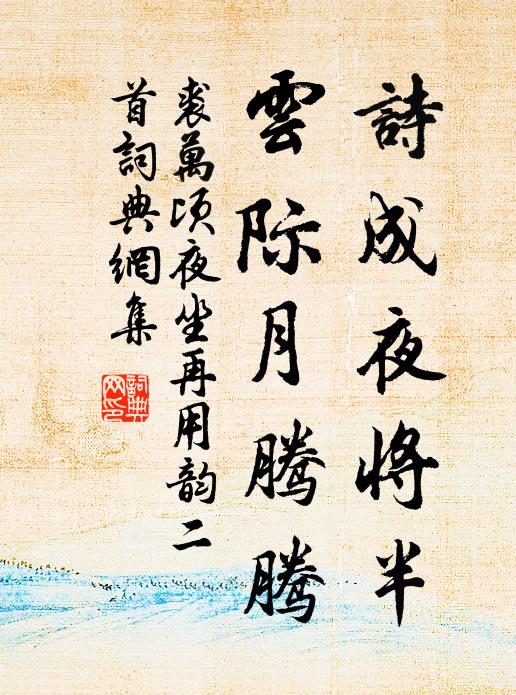 詩成夜將半
雲际月騰騰
裘萬顷夜坐再用韵二
首詞典網集
詞典
网印